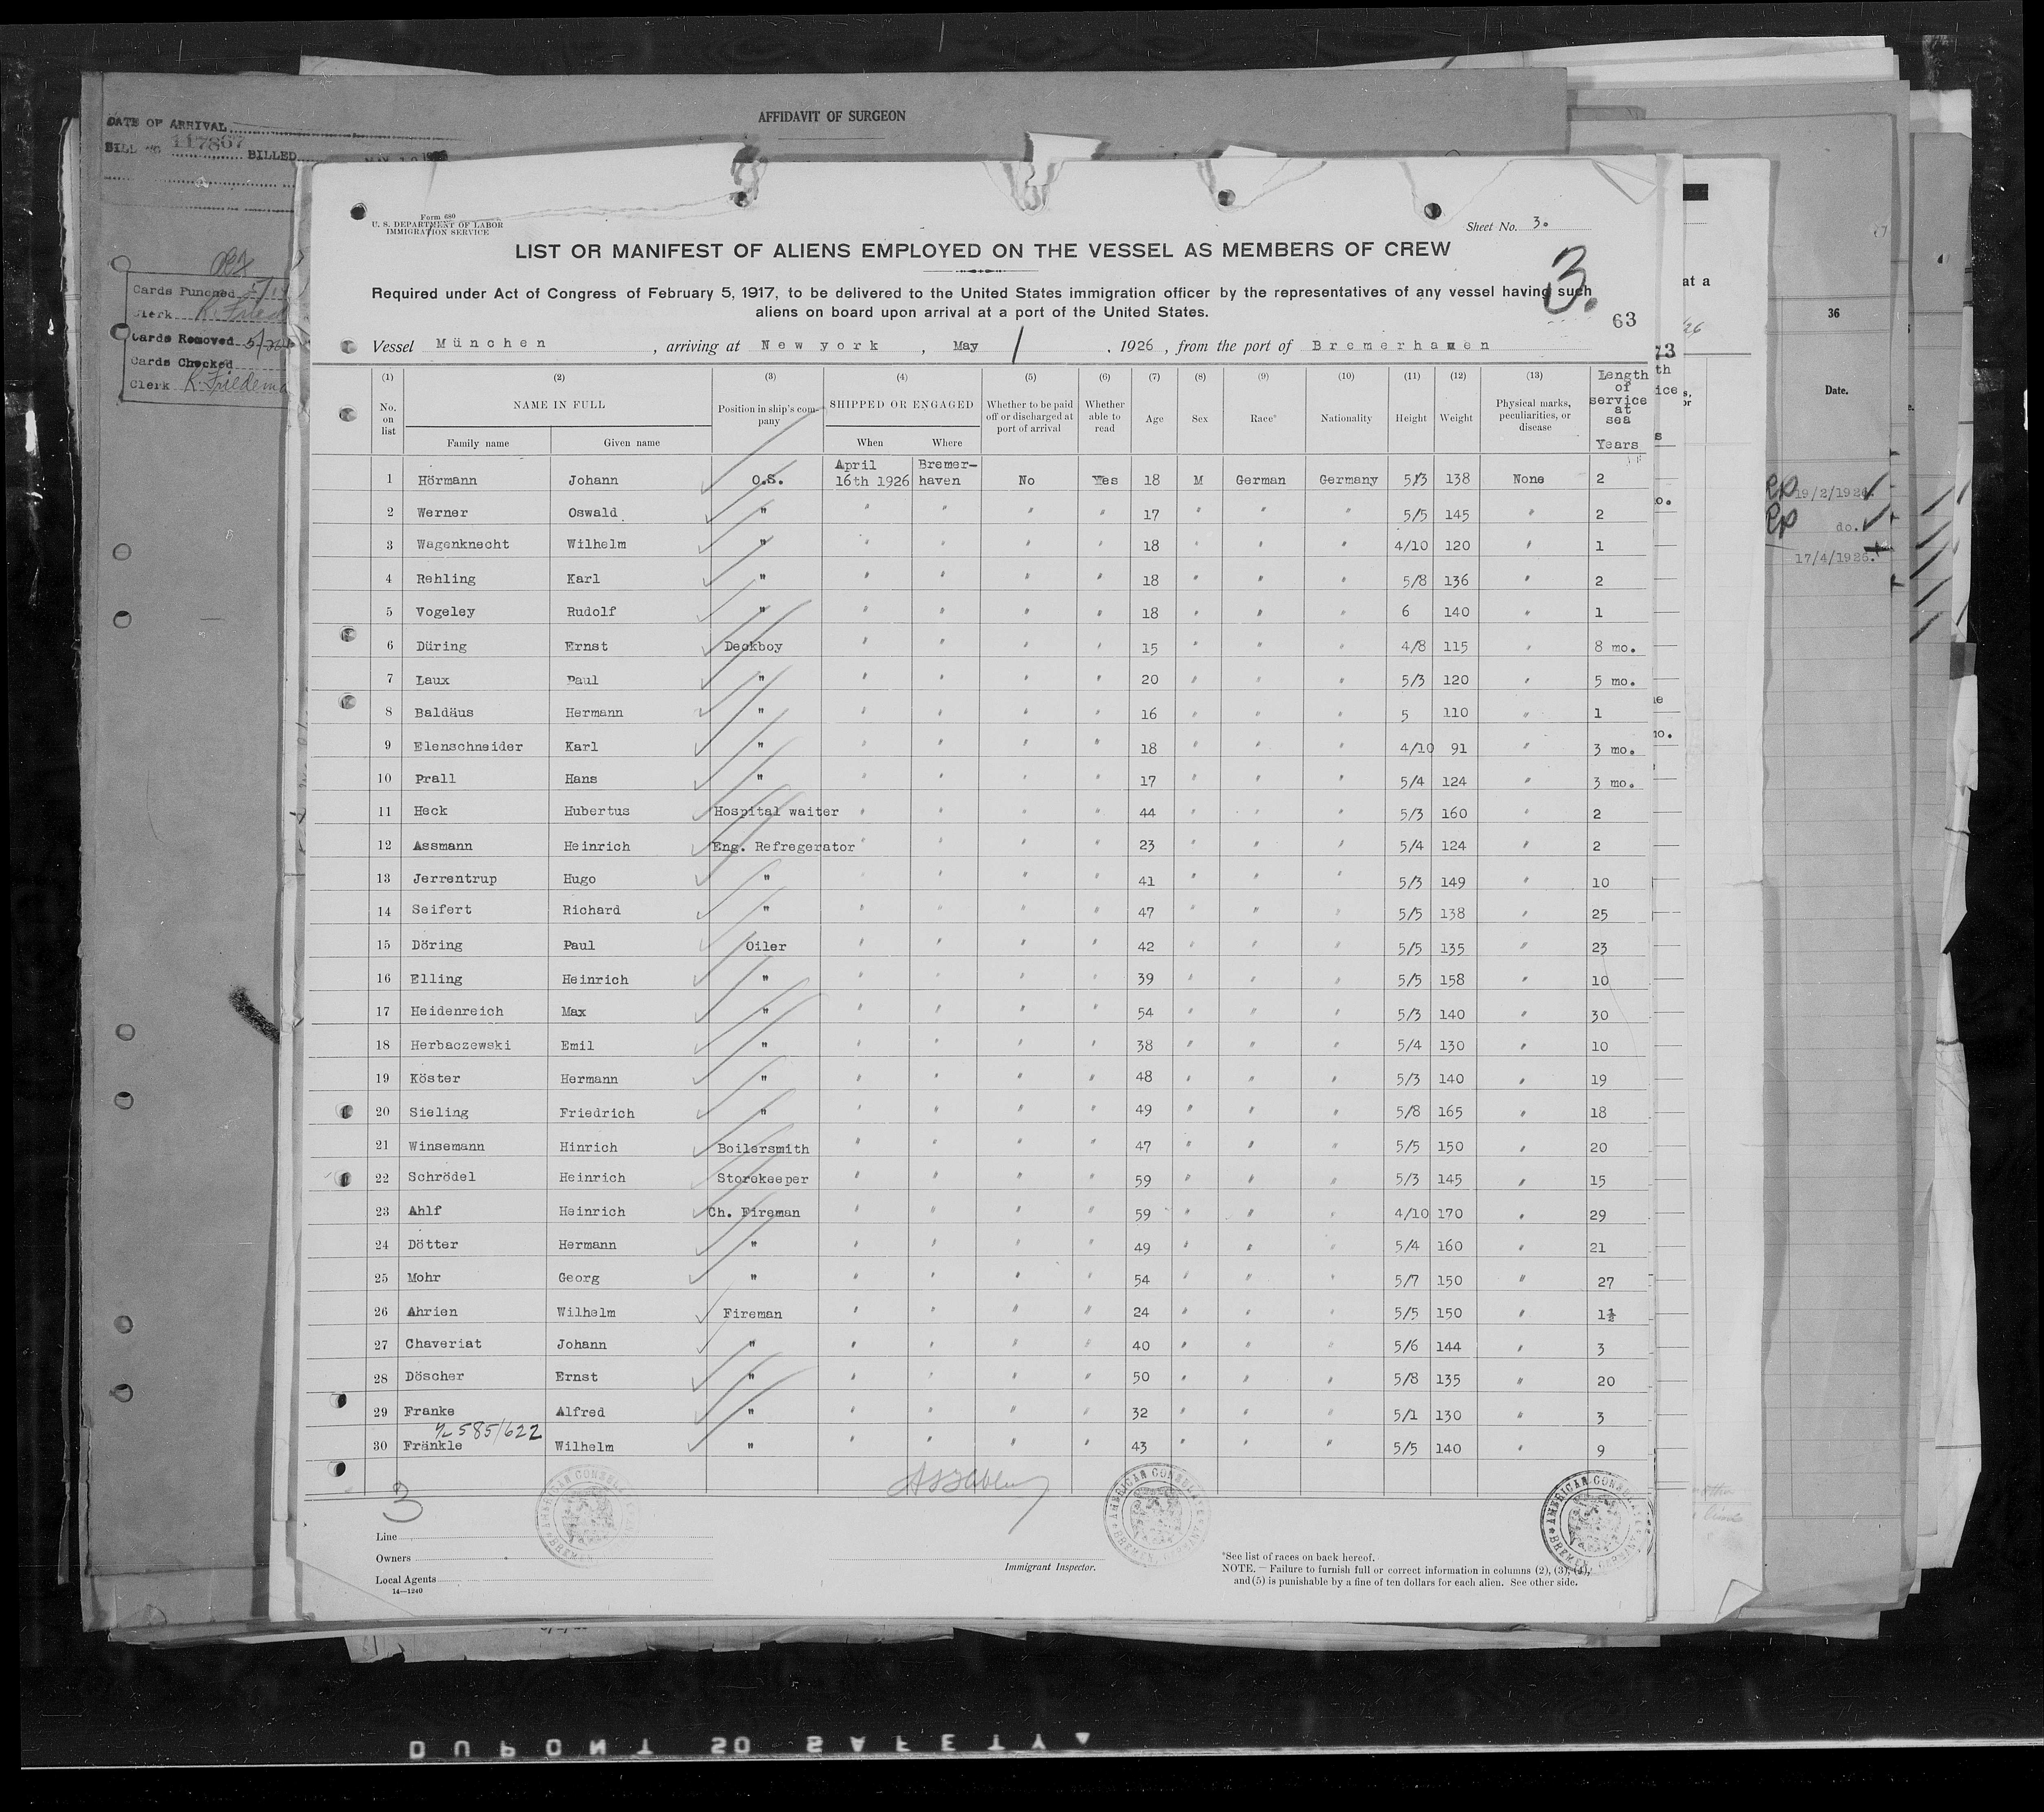 AFFIDAVIT OF SURGEON
DATE OF ARRIVAL
BILL NO 117867 BILLED
Cards Punched 5/1
Clerk
Cards Removed
Cards Checked
Clerk K. Friedema
Form 680
U. S. DEPARTMENT OF LABOR
IMMIGRATION SERVICE
Sheet No. 3.
LIST OR MANIFEST OF ALIENS EMPLOYED ON THE VESSEL AS MEMBERS OF CREW
3.
Required under Act of Congress of February 5, 1917, to be delivered to the United States immigration officer by the representatives of any vessel having such
aliens on board upon arrival at a port of the United States.
63
Vessel München, arriving at New york, May 1, 1926, from the port of Bremerhaven
(1) (2) (3) (4) (5) (6) (7) (8) (9) (10) (11) (12) (13) Length of service at sea Years
No. on list NAME IN FULL Family name Given name Position in ship's company SHIPPED OR ENGAGED When Where Whether to be paid off or discharged at port of arrival Whether able to read Age Sex Race* Nationality Height Weight Physical marks, peculiarities, or disease
1 Hörmann Johann O.S. April 16th 1926 Bremer-haven No Yes 18 M German Germany 5/3 138 None 2
2 Werner Oswald " " " " " 17 " " " 5/5 145 " 2
3 Wagenknecht Wilhelm " " " " " 18 " " " 4/10 120 " 1
4 Rehling Karl " " " " " 18 " " " 5/8 136 " 2
5 Vogeley Rudolf " " " " " 18 " " " 6 140 " 1
6 Düring Ernst Deckboy " " " " 15 " " " 4/8 115 " 8 mo.
7 Laux Paul " " " " " 20 " " " 5/3 120 " 5 mo.
8 Baldäus Hermann " " " " " 16 " " " 5 110 " 1
9 Elenschneider Karl " " " " " 18 " " " 4/10 91 " 3 mo.
10 Prall Hans " " " " " 17 " " " 5/4 124 " 3 mo.
11 Heck Hubertus Hospital waiter " " " " 44 " " " 5/3 160 " 2
12 Assmann Heinrich Eng. Refregerator " " " " 23 " " " 5/4 124 " 2
13 Jerrentrup Hugo " " " " " 41 " " " 5/3 149 " 10
14 Seifert Richard " " " " " 47 " " " 5/5 138 " 25
15 Döring Paul Oiler " " " " 42 " " " 5/5 135 " 23
16 Elling Heinrich " " " " " 39 " " " 5/5 158 " 10
17 Heidenreich Max " " " " " 54 " " " 5/3 140 " 30
18 Herbaczewski Emil " " " " " 38 " " " 5/4 130 " 10
19 Köster Hermann " " " " " 48 " " " 5/3 140 " 19
20 Sieling Friedrich " " " " " 49 " " " 5/8 165 " 18
21 Winsemann Hinrich Boilersmith " " " " 47 " " " 5/5 150 " 20
22 Schrödel Heinrich Storekeeper " " " " 59 " " " 5/3 145 " 15
23 Ahlf Heinrich Ch. Fireman " " " " 59 " " " 4/10 170 " 29
24 Dötter Hermann " " " " " 49 " " " 5/4 160 " 21
25 Mohr Georg " " " " " 54 " " " 5/7 150 " 27
26 Ahrien Wilhelm Fireman " " " " 24 " " " 5/5 150 " 1½
27 Chaveriat Johann " " " " " 40 " " " 5/6 144 " 3
28 Döscher Ernst " " " " " 50 " " " 5/8 135 " 20
29 Franke Alfred " " " " " 32 " " " 5/1 130 " 3
585/622
30 Fränkle Wilhelm " " " " " 43 " " " 5/5 140 " 9
3
AMERICAN CONSULATE BREMEN, GERMANY
Line
Owners
Local Agents
14—1240
Immigrant Inspector.
*See list of races on back hereof.
NOTE.—Failure to furnish full or correct information in columns (2), (3), (4),
and (5) is punishable by a fine of ten dollars for each alien. See other side.
at a
36
Date.
19/2/1926.
do.
17/4/1926.
DUPONT SO SAFETY